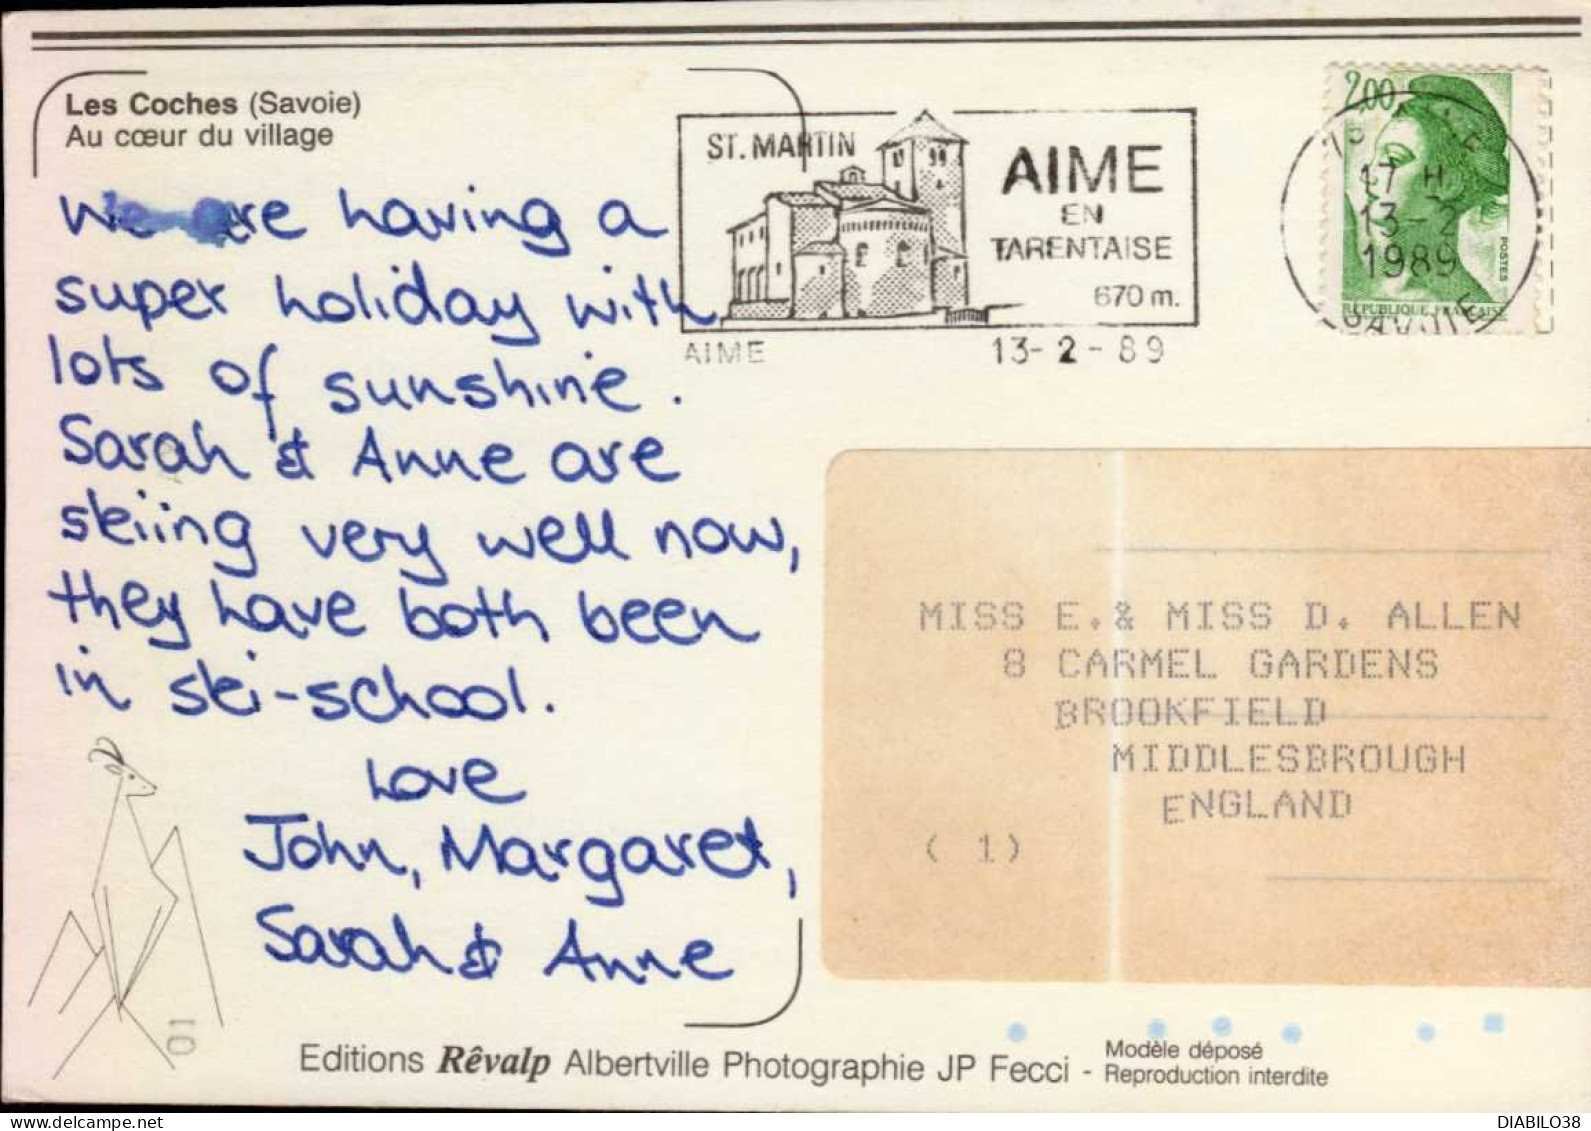 Les Coches (Savoie)
Au cœur du village
We are having a
super holiday with
lots of sunshine.
Sarah & Anne are
skiing very well now,
they have both been
in ski-school.
Love
John, Margaret,
Sarah & Anne
ST. MARTIN
AIME
EN
TARENTAISE
670 m.
AIME 13-2-89
2,00
POSTES
REPUBLIQUE FRANCAISE
17 H
13-2
1989
SAVOIE
MISS E.& MISS D. ALLEN
8 CARMEL GARDENS
BROOKFIELD
MIDDLESBROUGH
ENGLAND
( 1)
01
Editions Rêvalp Albertville Photographie JP Fecci - Modèle déposé
Reproduction interdite
DIABILO38